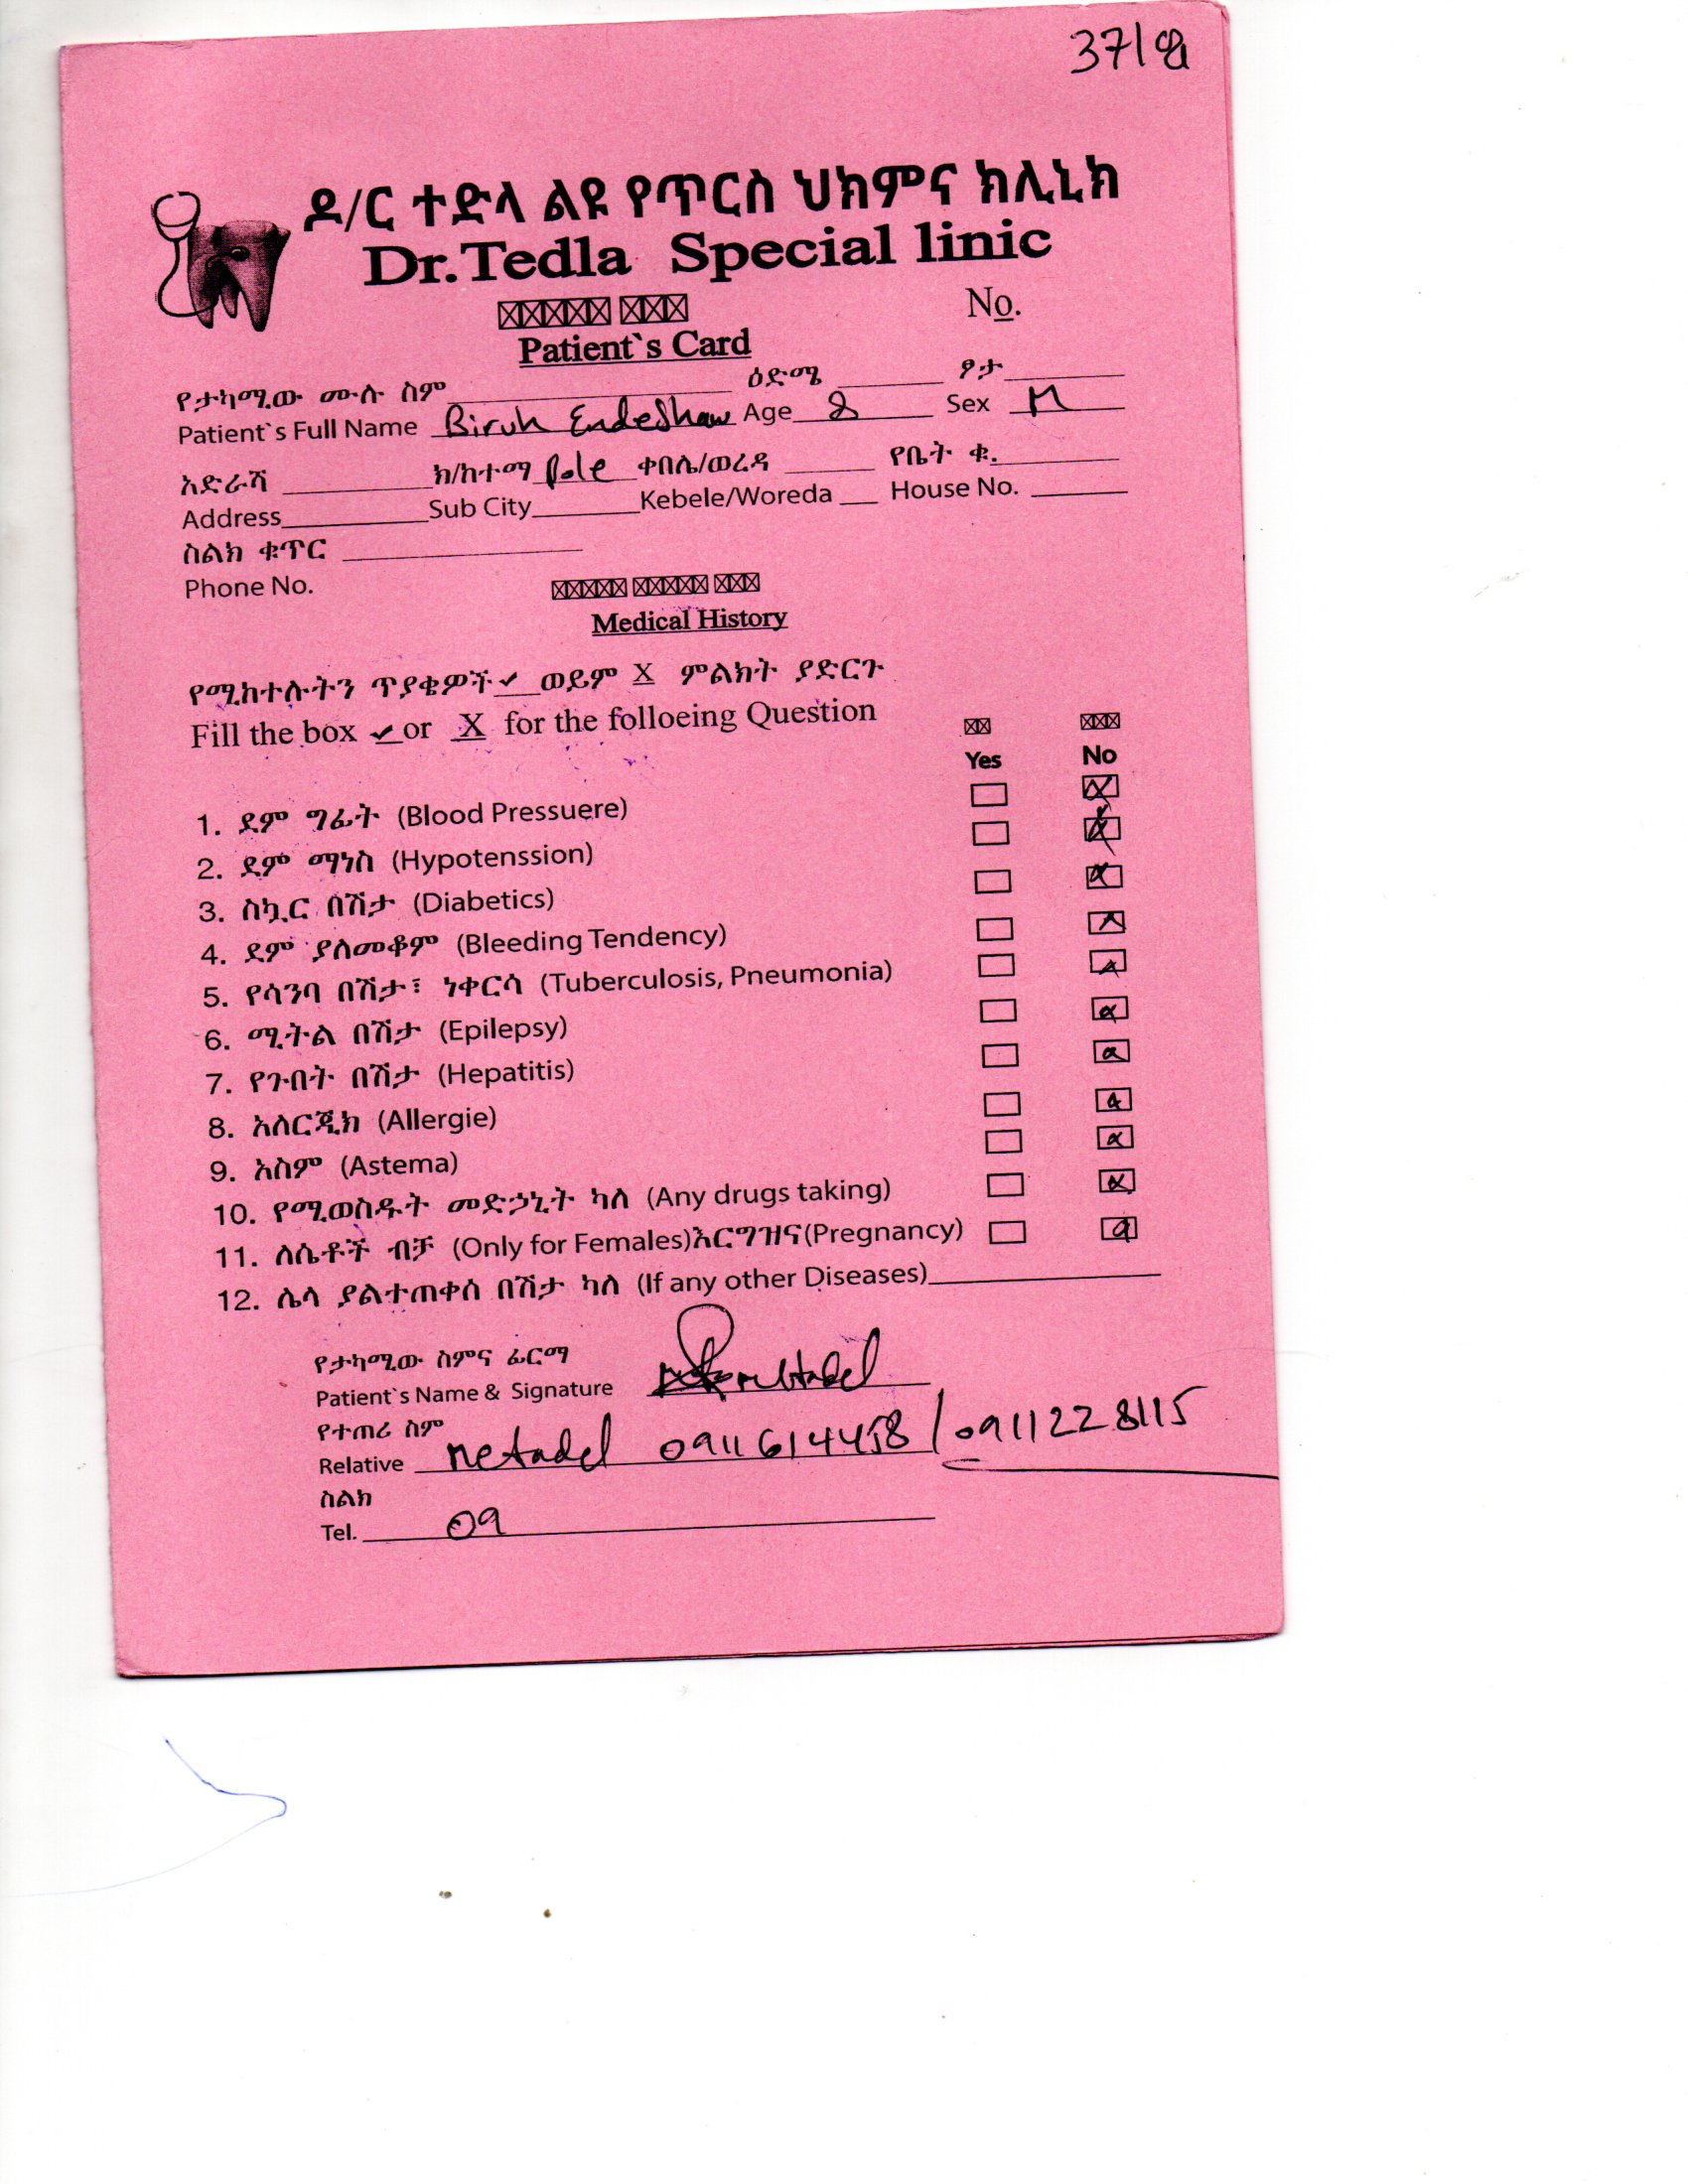 37/
ዶ/ር ተድላ ልዩ የጥርስ ህክምና ክሊኒክ
Dr.Tedla Special linic
No.
Patient`s Card
የታካሚው ሙሉ ስም ዕድሜ ፆታ
Patient`s Full Name Biruh Endeshaw Age 8 Sex M
አድራሻ ክ/ከተማ Bole ቀበሌ/ወረዳ የቤት ቁ.
Address Sub City Kebele/Woreda House No.
ስልክ ቁጥር
Phone No.
Medical History
የሚከተሉትን ጥያቄዎች ✓ ወይም X ምልክት ያድርጉ
Fill the box ✓ or X for the folloeing Question
Yes No
1. ደም ግፊት (Blood Pressuere)
2. ደም ማነስ (Hypotenssion)
3. ስኳር በሽታ (Diabetics)
4. ደም ያለመቆም (Bleeding Tendency)
5. የሳንባ በሽታ፣ ነቀርሳ (Tuberculosis, Pneumonia)
6. ሚትል በሽታ (Epilepsy)
7. የጉበት በሽታ (Hepatitis)
8. አለርጂክ (Allergie)
9. አስም (Astema)
10. የሚወስዱት መድኃኒት ካለ (Any drugs taking)
11. ለሴቶች ብቻ (Only for Females)እርግዝና(Pregnancy)
12. ሌላ ያልተጠቀሰ በሽታ ካለ (If any other Diseases)
የታካሚው ስምና ፊርማ
Patient`s Name & Signature
የተጠሪ ስም
Relative Metadel 0911614458 / 0911228115
ስልክ
Tel. 09